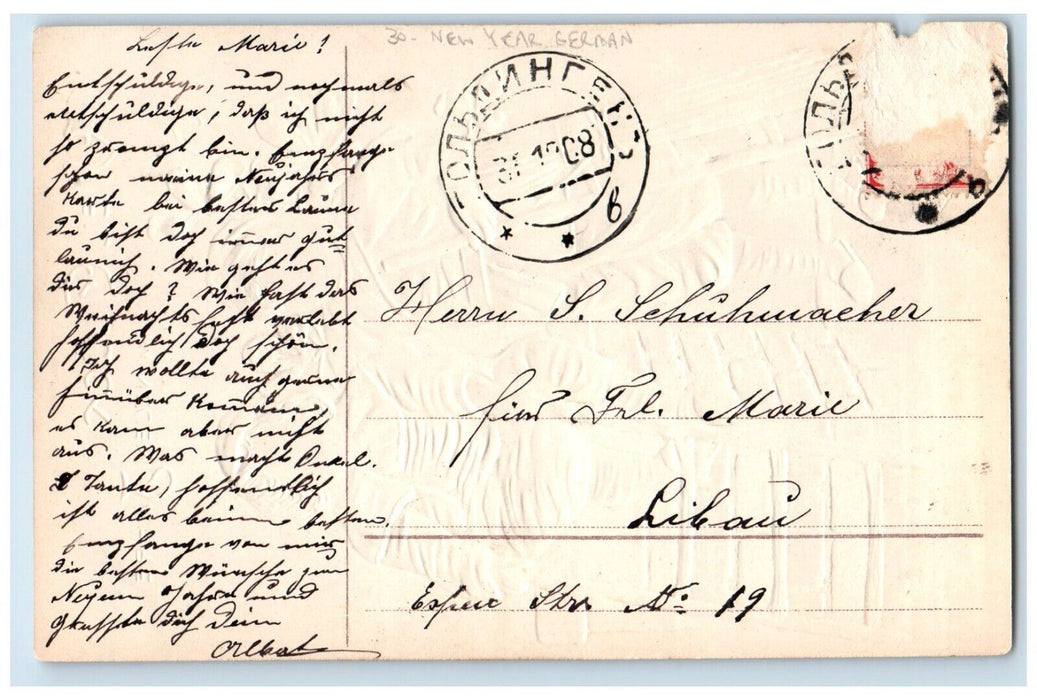 30- NEW YEAR GERMAN
Liebste Marie!
Entschuldige, und nochmals
entschuldige, daß ich nicht
so prompt bin. Empfange
schon meine Neujahrs
Karte bei bester Laune
du bist doch immer gut
launich. Wie geht es
dir doch? Wie hast das
Weihnachtsfest verlebt
hoffendlich doch schön.
Ich wollte auch gerne
hinüber kommen,
es kam aber nicht
aus. Was macht Onkel.
& Tante, hoffendlich
ist alles beim besten.
Empfange von mir
die besten Wünsche zum
Neuen Jahre und
Grüsste dich Dein
ГОЛЬДИНГЕНЪ
31.12.08
в
ГОЛЬД
Herrn S. Schuhmacher
für Frl. Marie
Libau
Str. No: 19